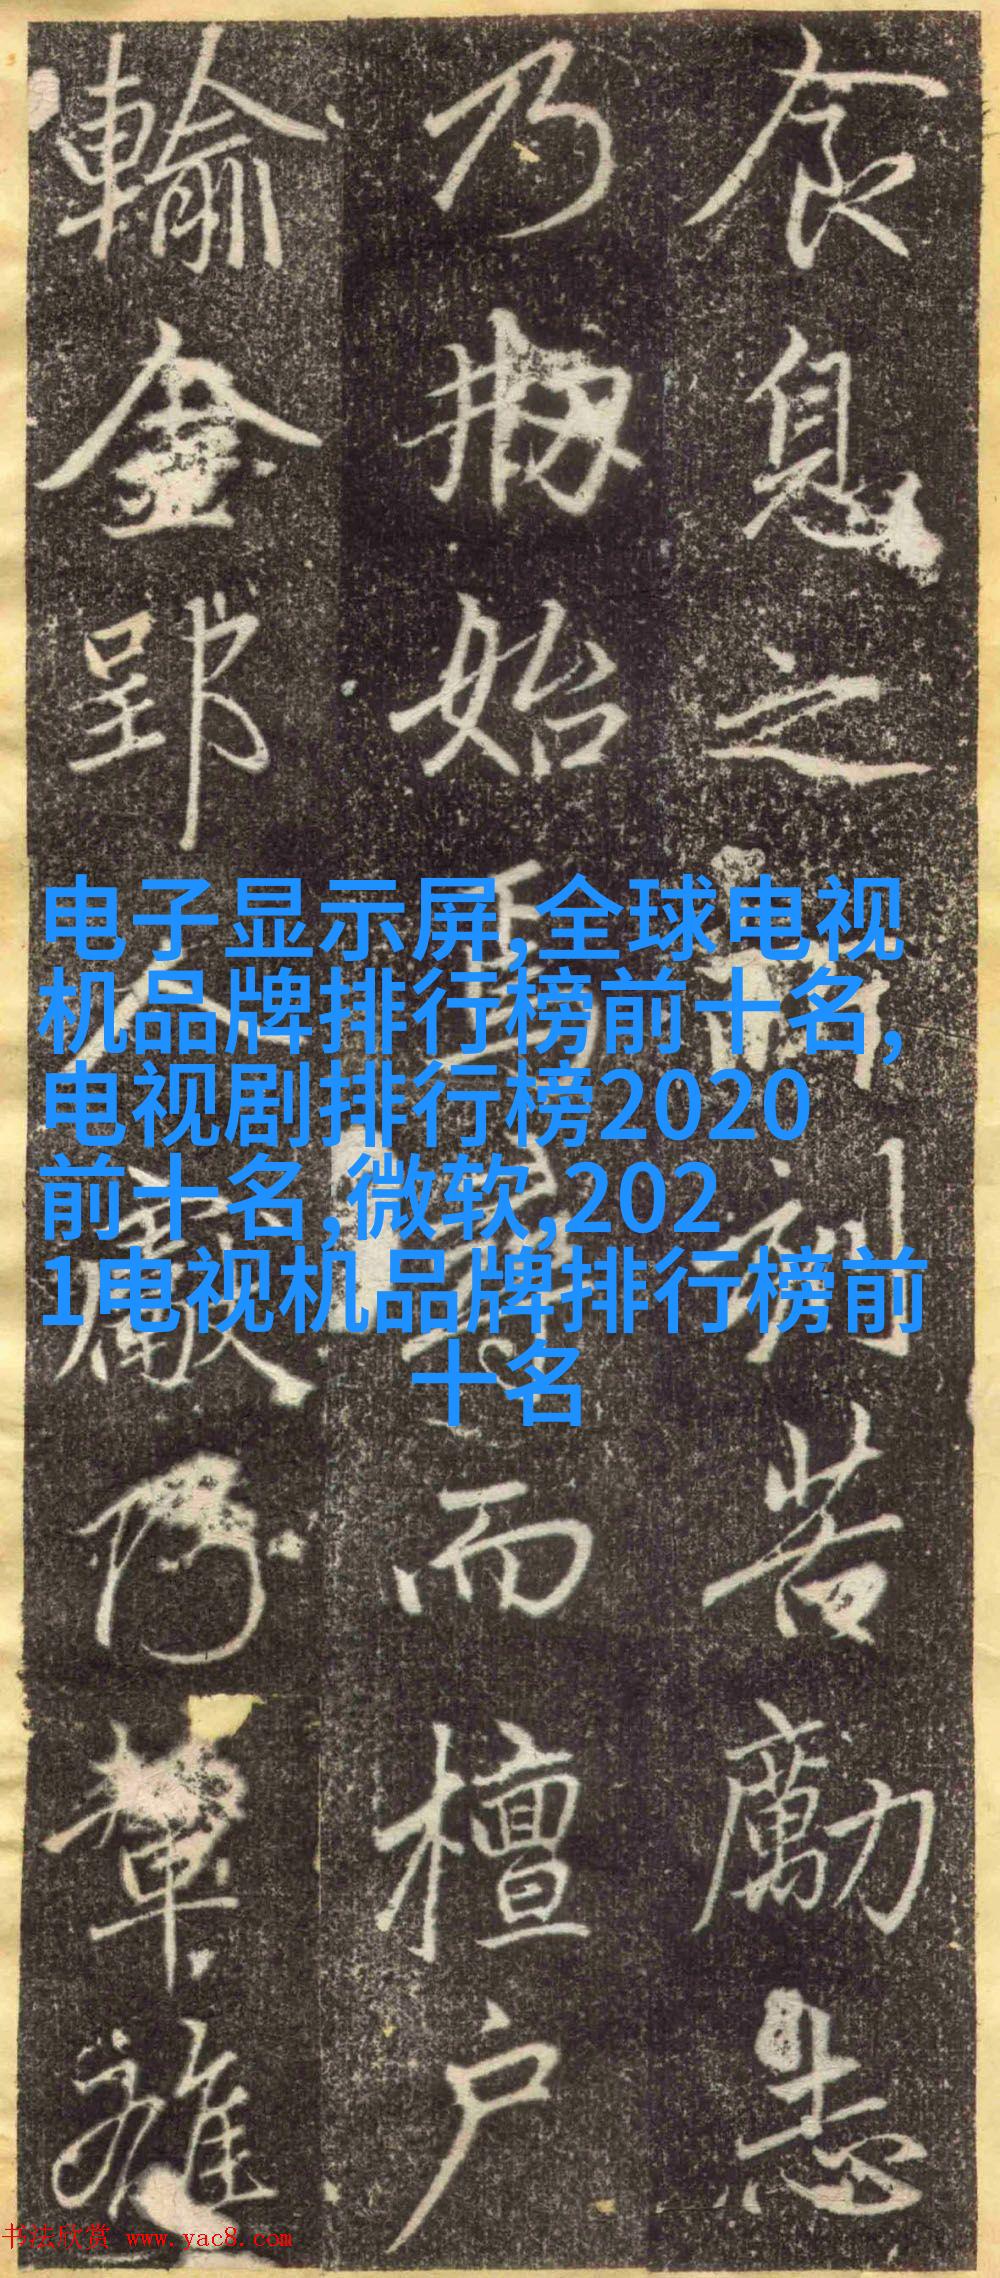 食息之所刻苦勵志
乃始焉而檀户
輸金郢人雖
电子显示屏,全球电视
机品牌排行榜前十名,
电视剧排行榜2020
前十名,微软,202
1电视机品牌排行榜前
十名
书法欣赏 www.yac8.com